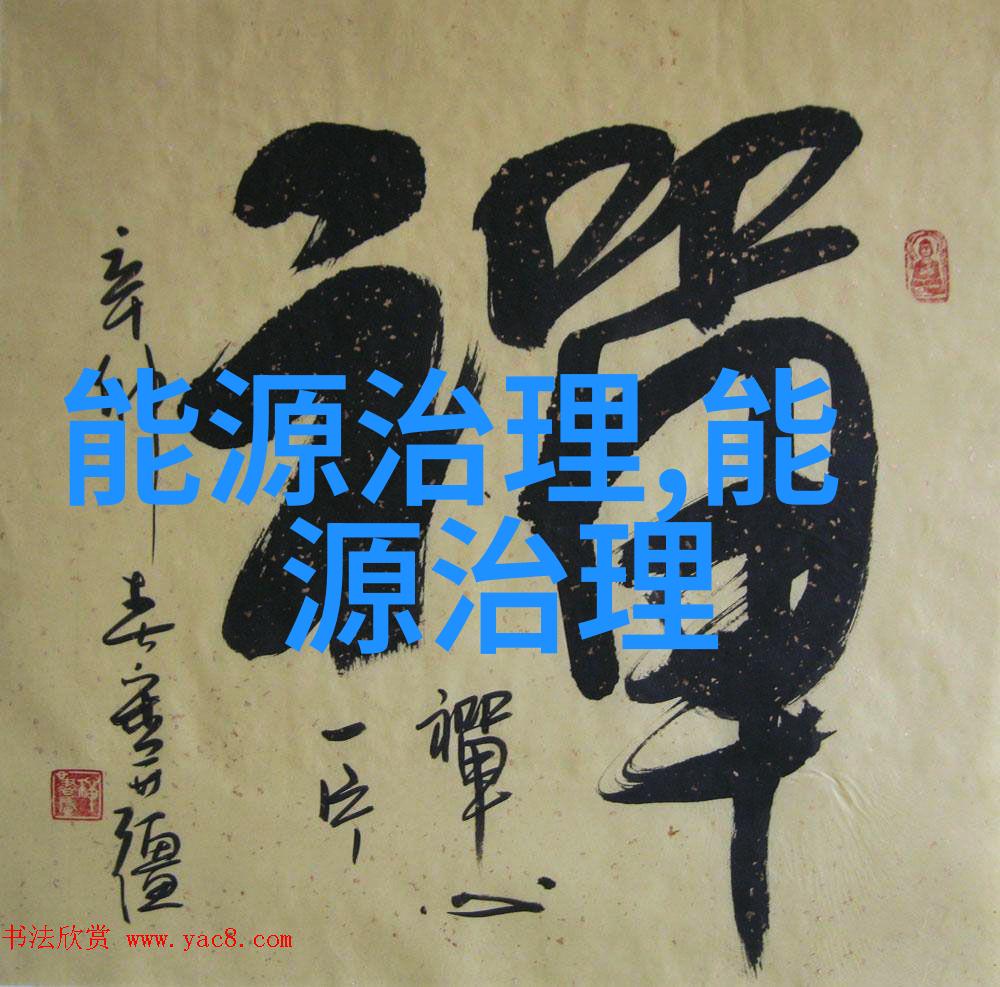 禪
禪心
一片
辛卯
春
能源治理,能
源治理
书法欣赏 www.yac8.com